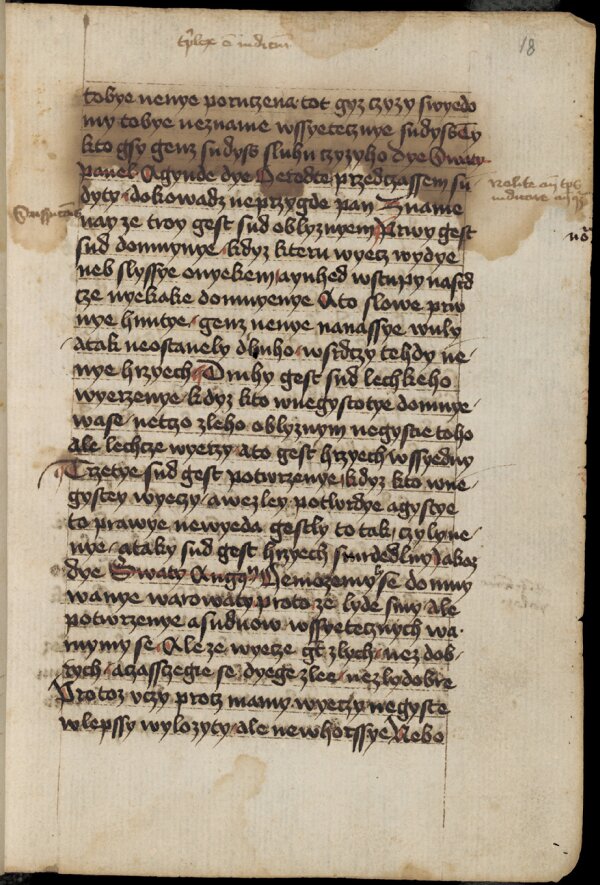 18
tobye nenye poruczena tot gyz czyzy swyedo
my tobye neznamie wssyetecznye sudyss Ty
kto gsy genz sudyss sluhu czyzyho dye Swaty
pawel Agynde dye Nerodte przedczassem su
dyty dokowadz neprzygde pan Zname
nay ze troy gest sud oblyznyem Prwy gest
sud domnynye kdyz kteru wyecz wydye
neb slyssye onyekem aynhed wstupy nasrd
cze nyekake domnyenye Ato slowe prw
nye hnutye genz nenye nanassye wuly
atak neostanely dluho wsrdczy tehdy ne
nye hrzyech Druhy gest sud lechkeho
wyerzenye kdyz kto wnegystotye domnye
wase netczo zleho oblyznym negystie toho
ale lechcze wyerzy ato gest hrzyech wssyedny
Trzetye sud gest potwrzenye kdyz kto wne
gystey wyeczy awezley potwrdye agystye
to prawye newyeda gestly to tak czylyne
nye ataky sud gest hrzyech smrdedlny Jakoz
dye Swaty Nemozemy se domny
wanye warowaty proto ze lyde smy Ale
potwrzenye asuduow wssyetecznych wa
rnymy se Ale ze wyecze zlych nez dob
rych aczassczegie se dyege zlee nezlydobre
Protoz wzy protz mamy wyeczy negyste
wlepssy wylozyty ale newhorssye Nebo